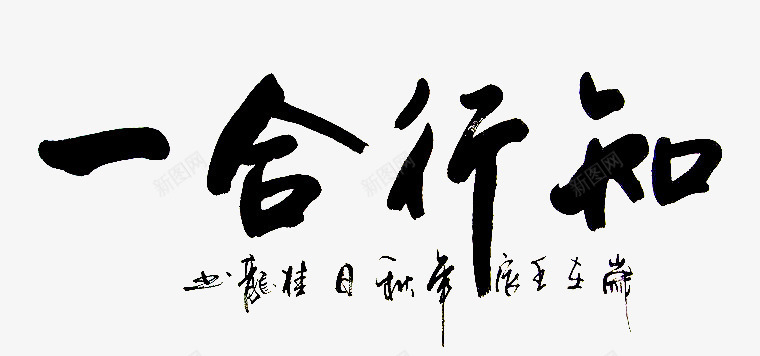 知行合一
歲在壬辰年秋日桂龍书
新图网
新图网
新图网